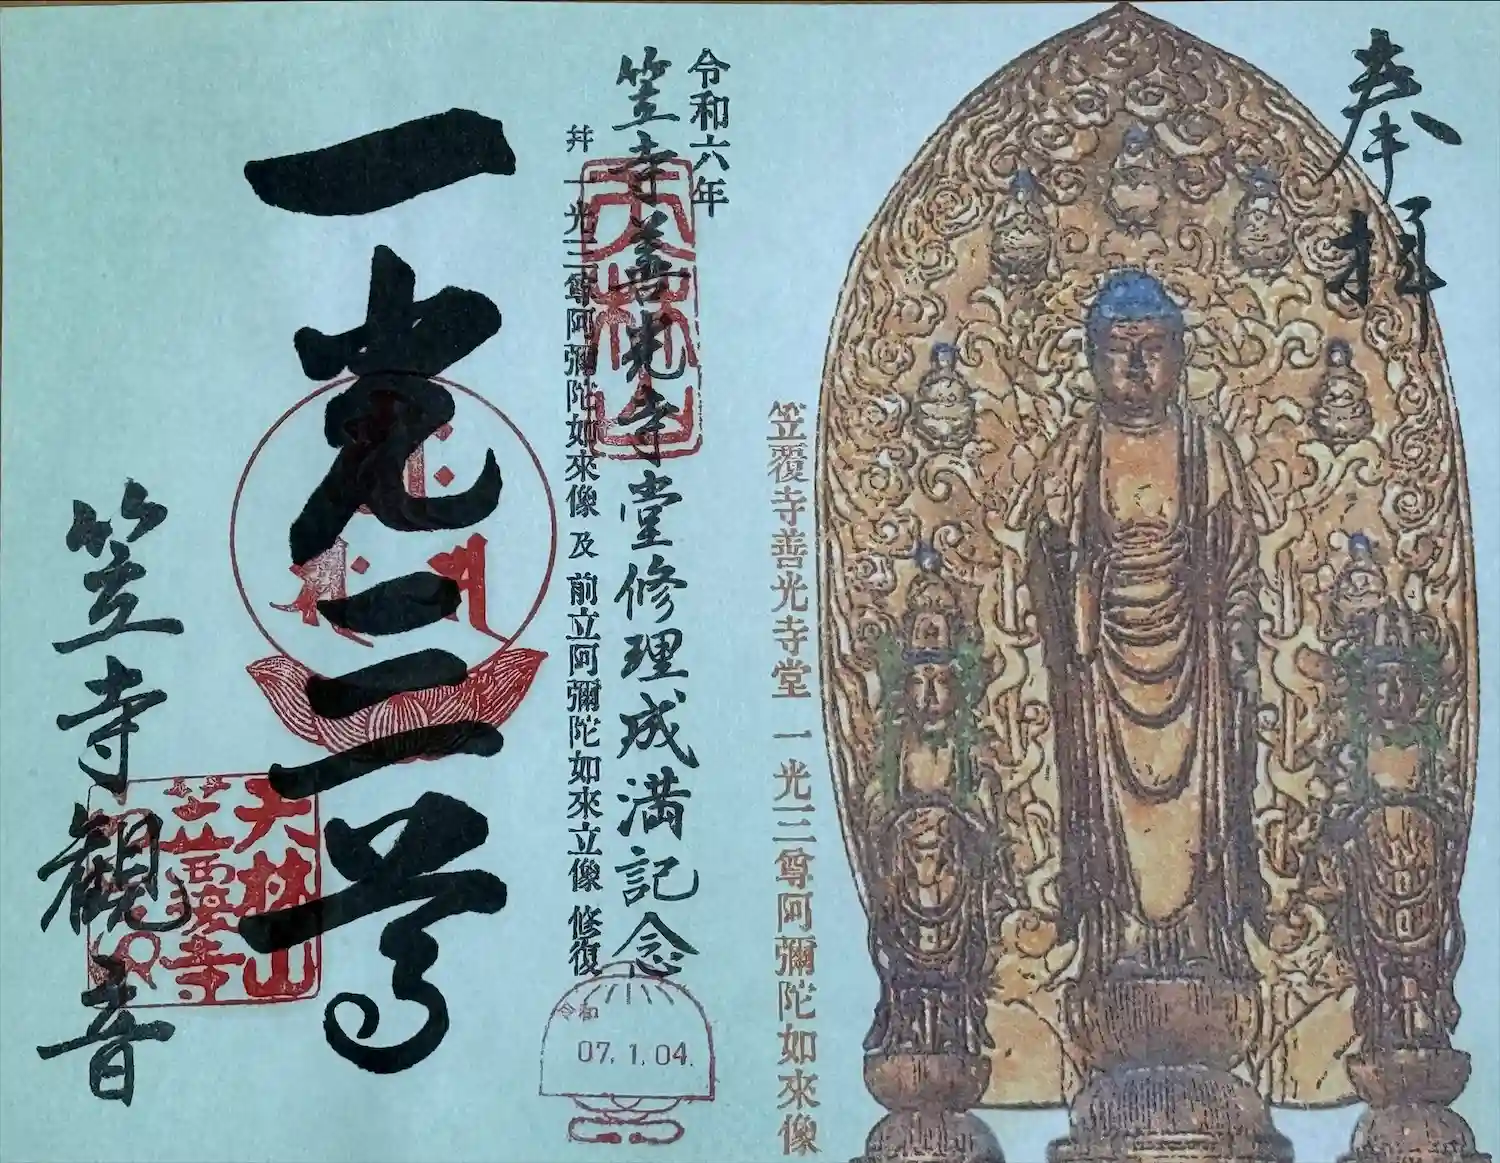 奉拝
笠覆寺善光寺堂 一光三尊阿彌陀如來像
令和六年
笠寺善光寺堂修理成満記念
天林山
丼 一光三尊阿彌陀如來像 及 前立阿彌陀如來立像 修復
令和
07.1.04.
一光三尊
笠寺観音
天林山
笠覆寺